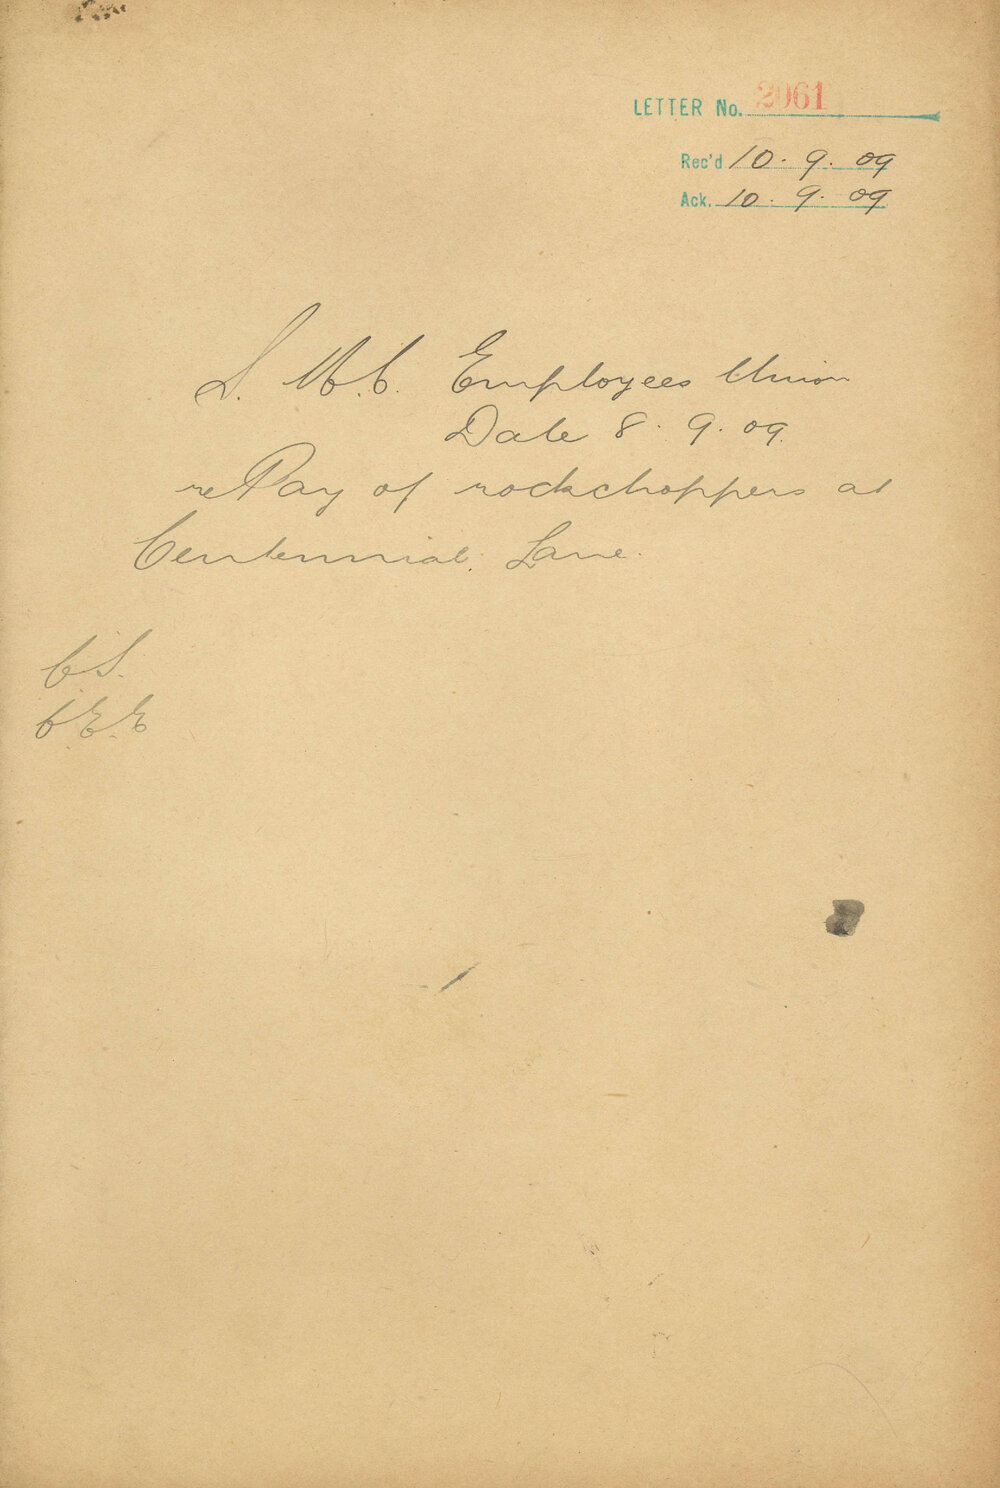 LETTER No. 2061
Rec'd 10. 9. 09
Ack. 10. 9. 09
S. M. C. Employees Union
Date 8. 9. 09.
re Pay of rockchoppers at
Centennial Lane.
C.S.
C.E.E